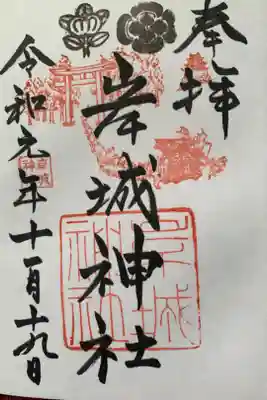 奉拝
岸城神社
令和元年十一月十九日
岸城
神社